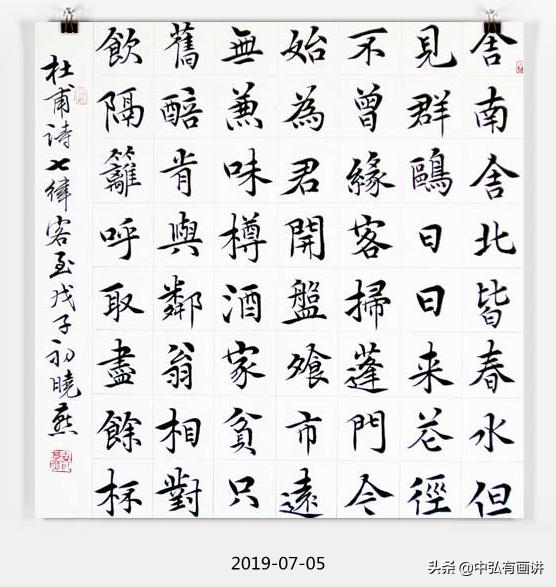 舍南舍北皆春水但
見群鷗日日来花徑
不曾緣客掃蓬門今
始為君開盤飱市遠
無兼味樽酒家貧只
舊醅肯與鄰翁相對
飲隔籬呼取盡餘杯
杜甫诗七律客至戊子初曉燕
2019-07-05
头条 @中弘有画讲